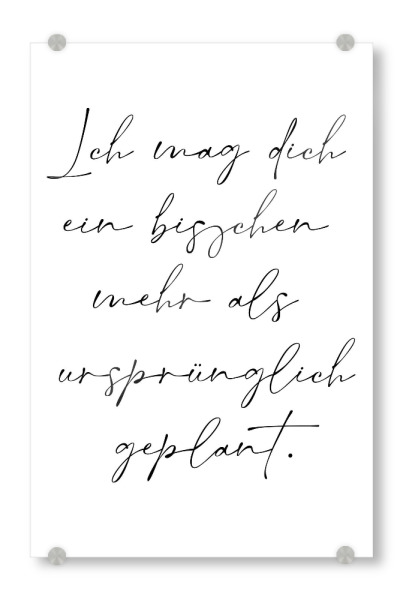 Ich mag dich
ein bisschen
mehr als
ursprünglich
geplant.